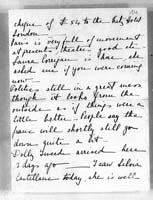 cheque of $54 to the Ritz Hotel
London.
Paris is very full of movement
at present, theatres good etc.
Laura Corrigan is here she
asked me if you were coming
now.
Politics still in a great mess
though it looks from the
outside as if things were a
little better - People say the
franc will shortly still go
down quite a bit.
Dolly Tweed arrived here
3 days ago I saw Silvia
Castellane today she is well